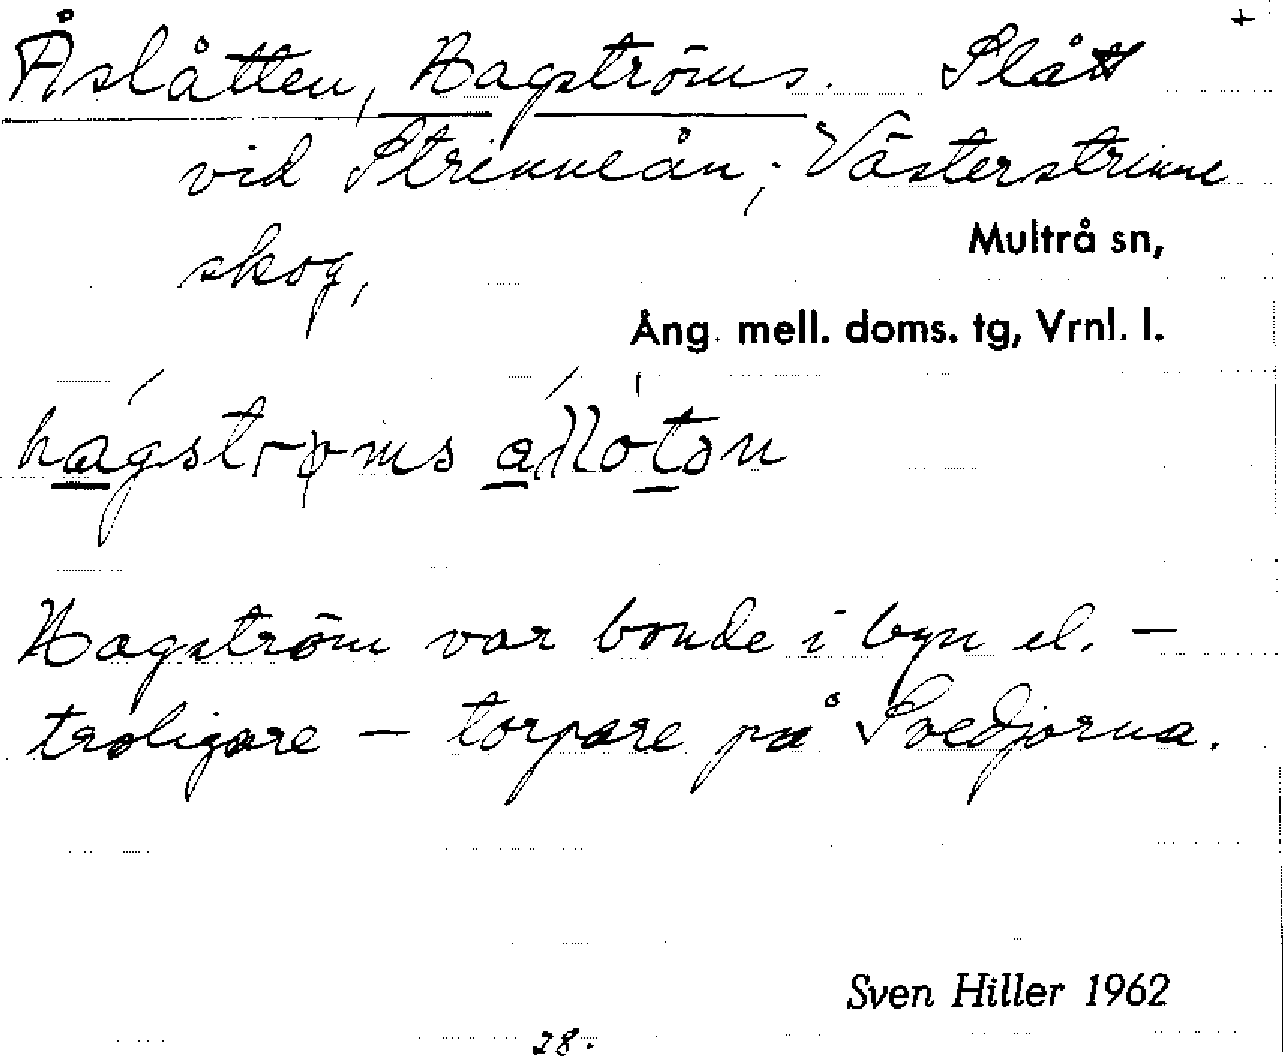 +
Åslåtten, Hagströms. Slått
vid Strinneån; Västerstrinne
skog,
Multrå sn,
Ång. mell. doms. tg, Vrnl. l.
Hagström var bonde i byn el. –
troligare – torpare på Svedjorna.
Sven Hiller 1962
28.